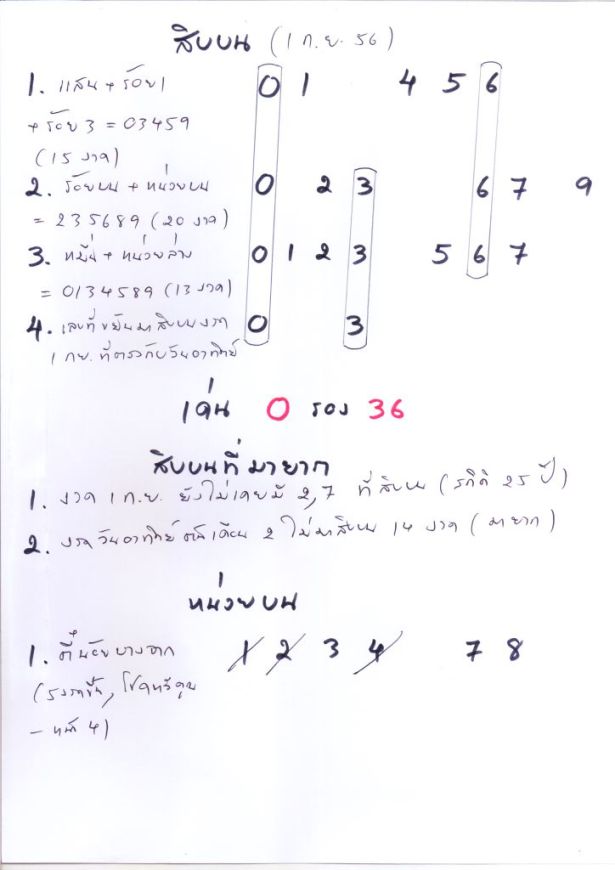 สิบบน (1 ก.ย. 56)
1. แสน + ร้อย1 0 1 4 5 6
+ ร้อย 3 = 03459
(15 งวด)
2. ร้อยบน + หน่วยบน 0 2 3 6 7 9
= 235689 (20 งวด)
3. หมื่น + หน่วยล่าง 0 1 2 3 5 6 7
= 0134589 (13 งวด)
4. เลขที่ขยันมาสิบบนงวด 0 3
1 กย. ที่ตรงกับวันอาทิตย์
เด่น 0 รอง 36
สิบบนที่มายาก
1. งวด 1 ก.ย. ยังไม่เคยมี 2,7 ที่สิบบน (สถิติ 25 ปี)
2. งวดวันอาทิตย์ต้นเดือน 2 ไม่มาสิบบน 14 งวด (มายาก)
หน่วยบน
1. ตี๋น้อยบางจาก 1 2 3 4 7 8
(โชคทวีคูณ
- หน้า 4)